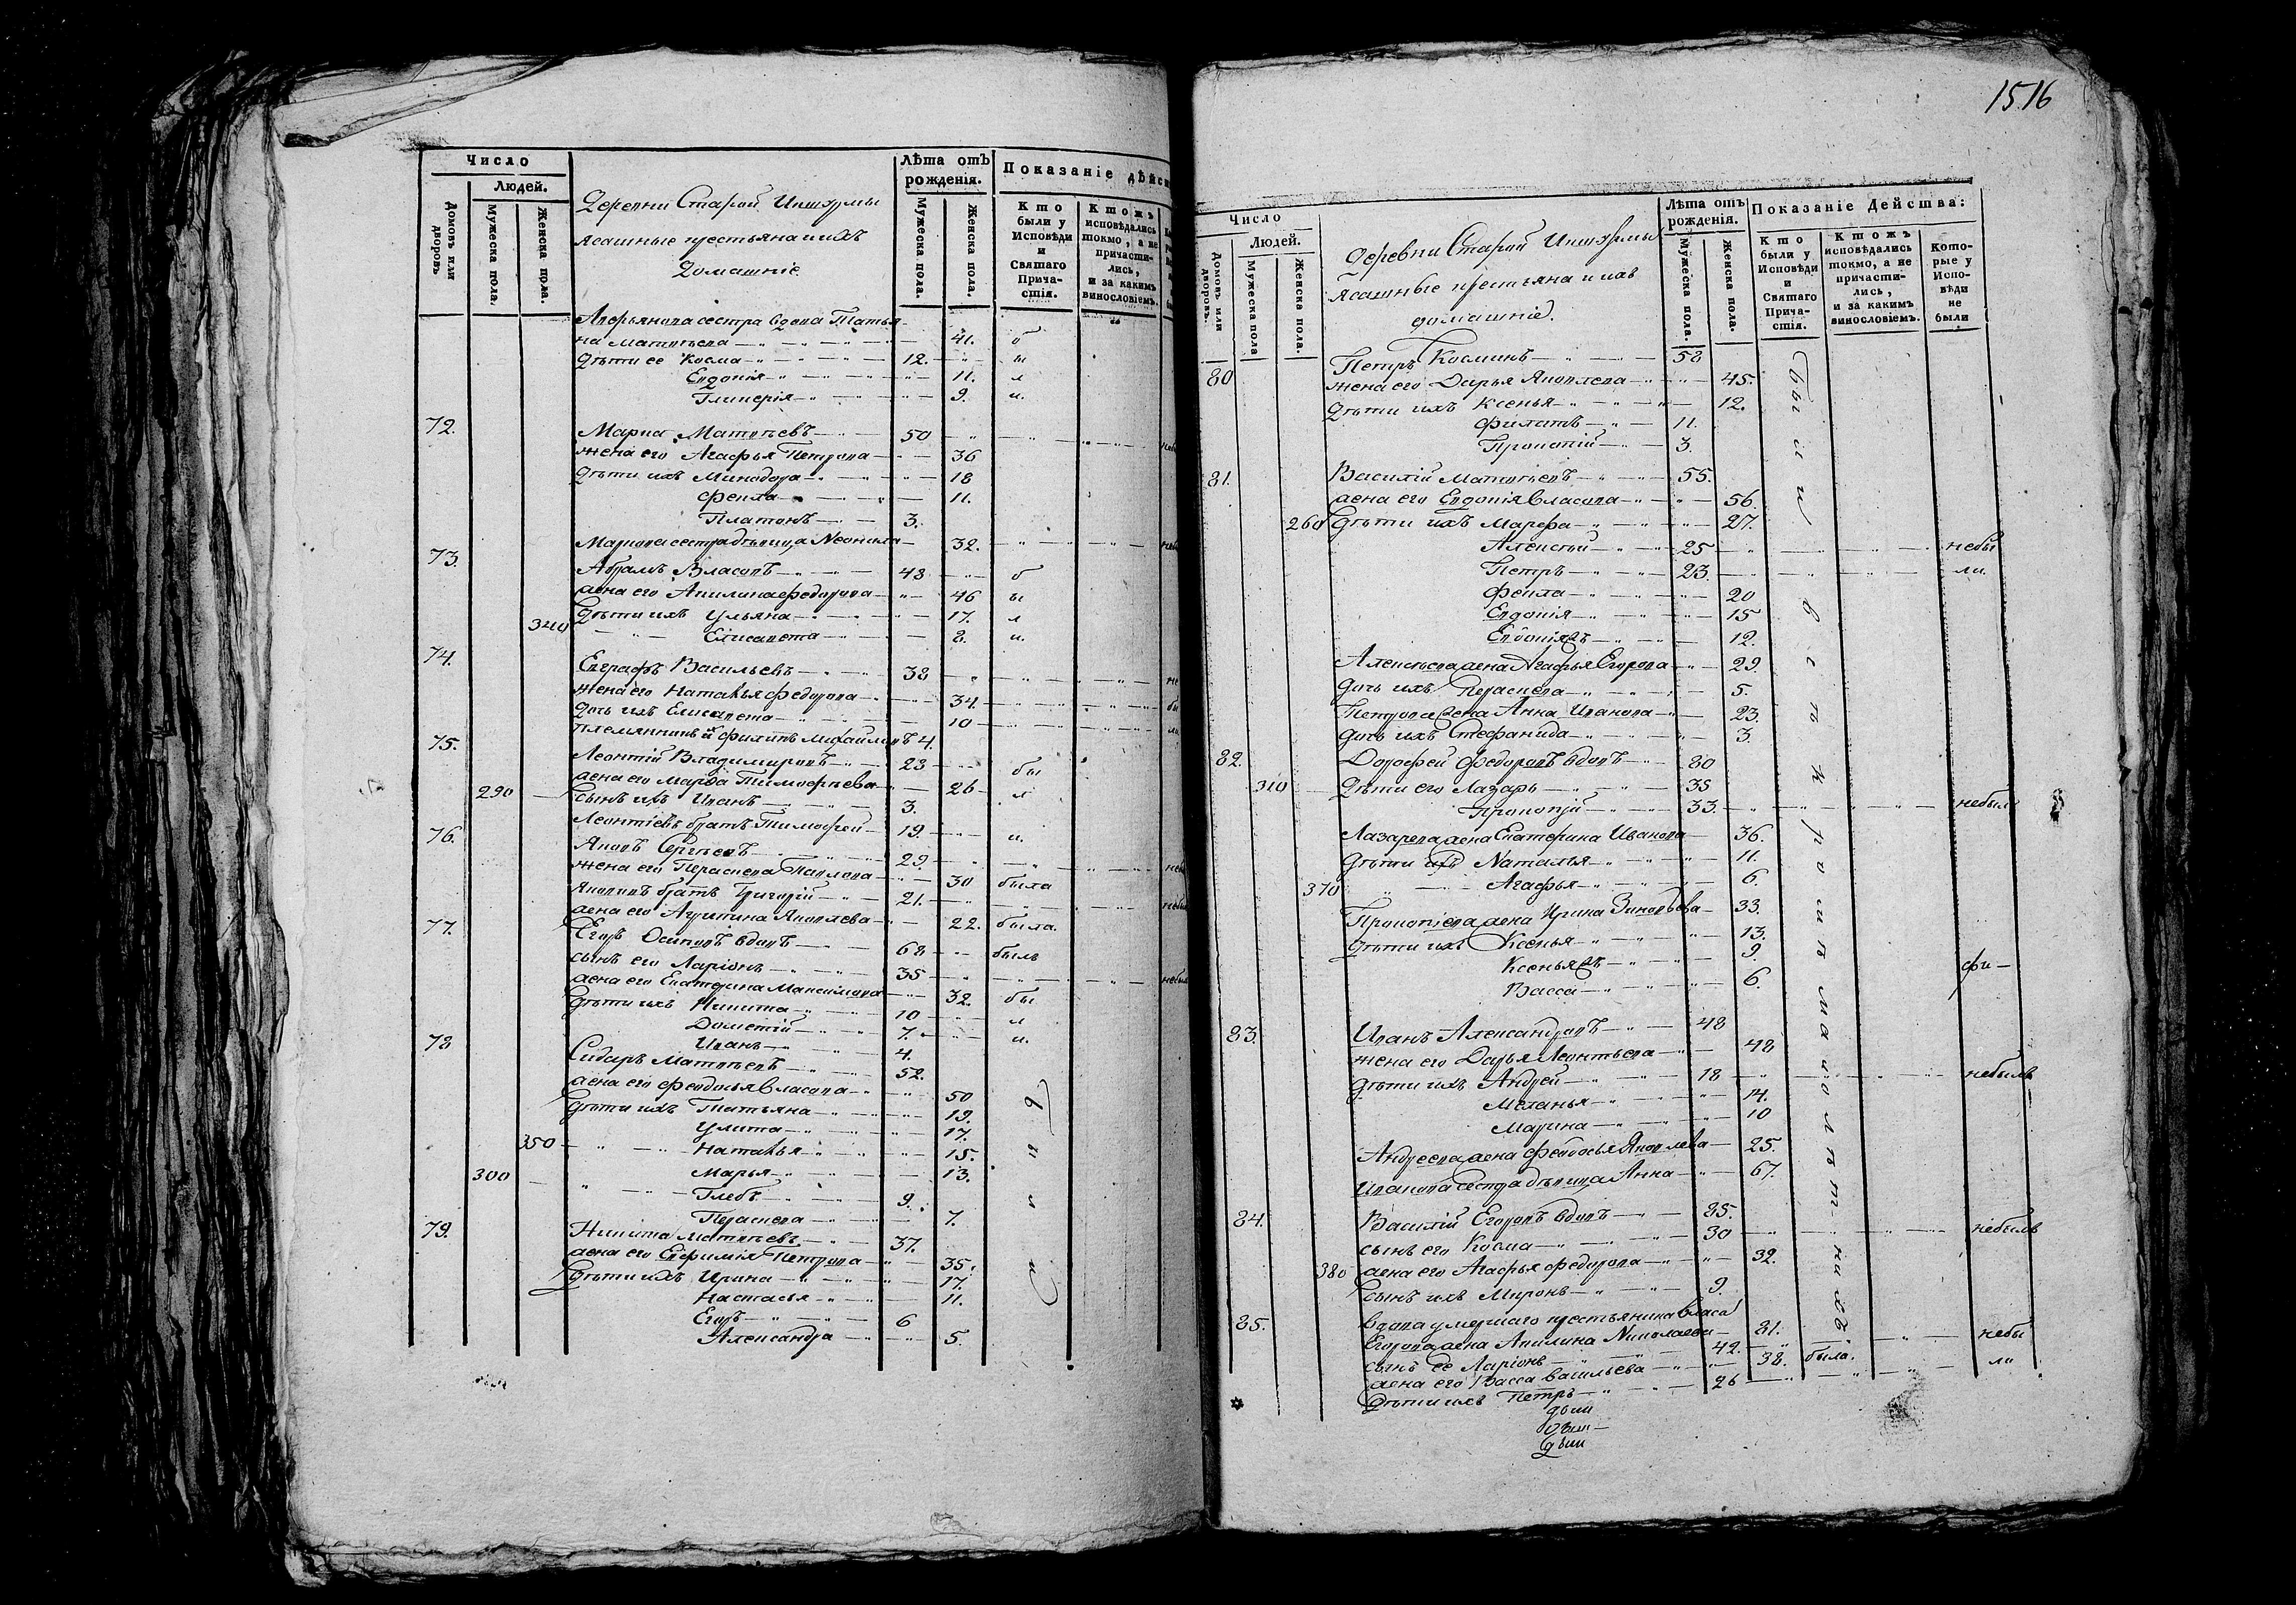 1516
Число
Людей.
Домовъ или дворовъ
Мужеска пола.
Женска пола.
Деревни Старой Иншурмы
ясашные крестьяна и ихъ
домашніе
Лѣта отъ рожденія.
Мужеска пола.
Женска пола.
Показаніе дѣйс
Кто были у Исповѣди и Святаго Причастія.
Ктожъ исповѣдались токмо, а не причастились, и за какимъ винословіемъ.
Аверьянова сестра вдова Татья
на Матвѣева 41. б
дѣти ее Косма 12. ы
Евдокія 11. л
Гликерія 9. и.
72. Марка Матвѣевъ 50
жена его Агафья Петрова 36
дѣти ихъ Минодора 18
Фекла 11.
Платонъ 3.
Маркова сестра дѣвица Неонила 32.
73. Абрамъ Власовъ 48 б
жена его Акилина Федорова 46 ы
дѣти ихъ Ульяна 17. л
340 Елисавета 8. и.
74. Евграфъ Васильевъ 38
жена его Наталья Федорова 34.
дочь ихъ Елисавета 10
племянникъ Филипъ Михайловъ 4.
75. Леонтій Владимировъ 23 бы
жена его Марфа Тимофѣева 26 л
290 сынъ ихъ Иванъ 3.
Леонтіевъ братъ Тимофей 19. и.
76. Яковъ Сергѣевъ 29
жена его Пераскева Павлова 30 была
Яковлевъ братъ Григорій 21.
жена его Агрипина Яковлева 22. была.
77. Егоръ Осиповъ вдовъ 68 былъ
сынъ его Ларіонъ 35
жена его Екатерина Максимова 32. бы
дѣти ихъ Никита 10 л
Дометій 7. и.
Иванъ 4.
78 Сидаръ Матвѣевъ 52.
жена его Феодосья Власова 50
дѣти ихъ Татьяна 19.
Улита 17.
350 Наталья 15.
Марья 13.
300 Глебъ 9.
Пераскева 7.
79. Никита Матвѣевъ 37.
жена его Евфимія Петрова 35.
дѣти ихъ Ирина 17.
Настасья 11.
Егоръ 6
Александра 5.
Число
Людей.
Домовъ или дворовъ.
Мужеска пола
Женска пола.
деревни Старой Иншурмы
ясашные крестьяна и ихъ
домашніе.
Лѣта отъ рожденія.
Мужеска пола.
Женска пола.
Показаніе Действа:
Кто были у Исповѣди и Святаго Причастія.
Ктожъ исповѣдались токмо, а не причастились, и за каким винословіем.
Которые у Исповѣди не были
80 Петръ Косминъ 58
жена его Дарья Яковлева 45.
дѣти ихъ Ксенья 12.
Филатъ 11.
Прокопій 3.
81. Василій Матвѣевъ 55.
жена его Евдокія Власова 56.
260 дѣти ихъ Марфа 27.
Алексѣй 25 небы
Петръ 23. ли.
Фекла 20
Евдокія 15
Евдокія 12.
Алексѣева жена Агафья Егорова 29.
дочь ихъ Пераскева 5.
Петрова жена Анна Иванова 23.
дочь ихъ Стефанида 3.
82. Дорофей Федоровъ вдовъ 80
310 дѣти его Лазарь 35
Прокопій 33. небыл
Лазарева жена Екатерина Иванова 36.
дѣти ихъ Наталья 11.
370 Агафья 6.
Прокопіева жена Ирина Зиновьева 33.
дѣти ихъ Ксенья 13.
Ксенья 9.
Васса 6.
фи
83. Иванъ Александровъ 48
жена его Дарья Леонтьева 48
дѣти ихъ Андрей 18 небылъ
Меланья 14.
Марина 10
Андреева жена Феодосья Яковлева 25.
Иванова сестра дѣвица Анна 67.
84. Василій Егоровъ вдовъ 85.
сынъ его Косма 30 небылъ
380 жена его Агафья Федорова 32.
сынъ ихъ Миронъ 9.
85. вдова умершаго крестьянина Власа
Егорова жена Акилина Николаева 81.
сынъ ее Ларіонъ 42. небы
жена его Васса Васильева 38. была.
дѣти ихъ Петръ 26 ли
дѣти